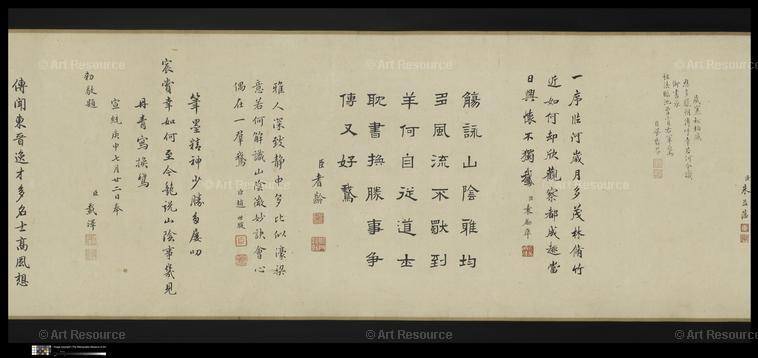 臣朱益藩
一序臨河歲月多茂林脩竹
近如何却欣觀察都成趣當
日興懷不獨鵞 臣袁勵準
觴詠山陰雅均
多風流不歇到
羊何自從道士
耽書換勝事爭
傳又好鵞
臣耆齡
雅人深致静中多比似濠梁
意若何解識山陰微妙訣會心
偶在一羣鵞 臣趙世駿
筆墨精神少勝多屢叨
宸賞幸如何至今艷說山陰事幾見
丹青寫換鵞
宣統庚申七月廿二日奉
勅敬題
臣載澤
傳聞東晉逸才多名士高風想
© Art Resource
© Art Resource
© Art Resource
© Art Resource
© Art Resource
© Art Resource